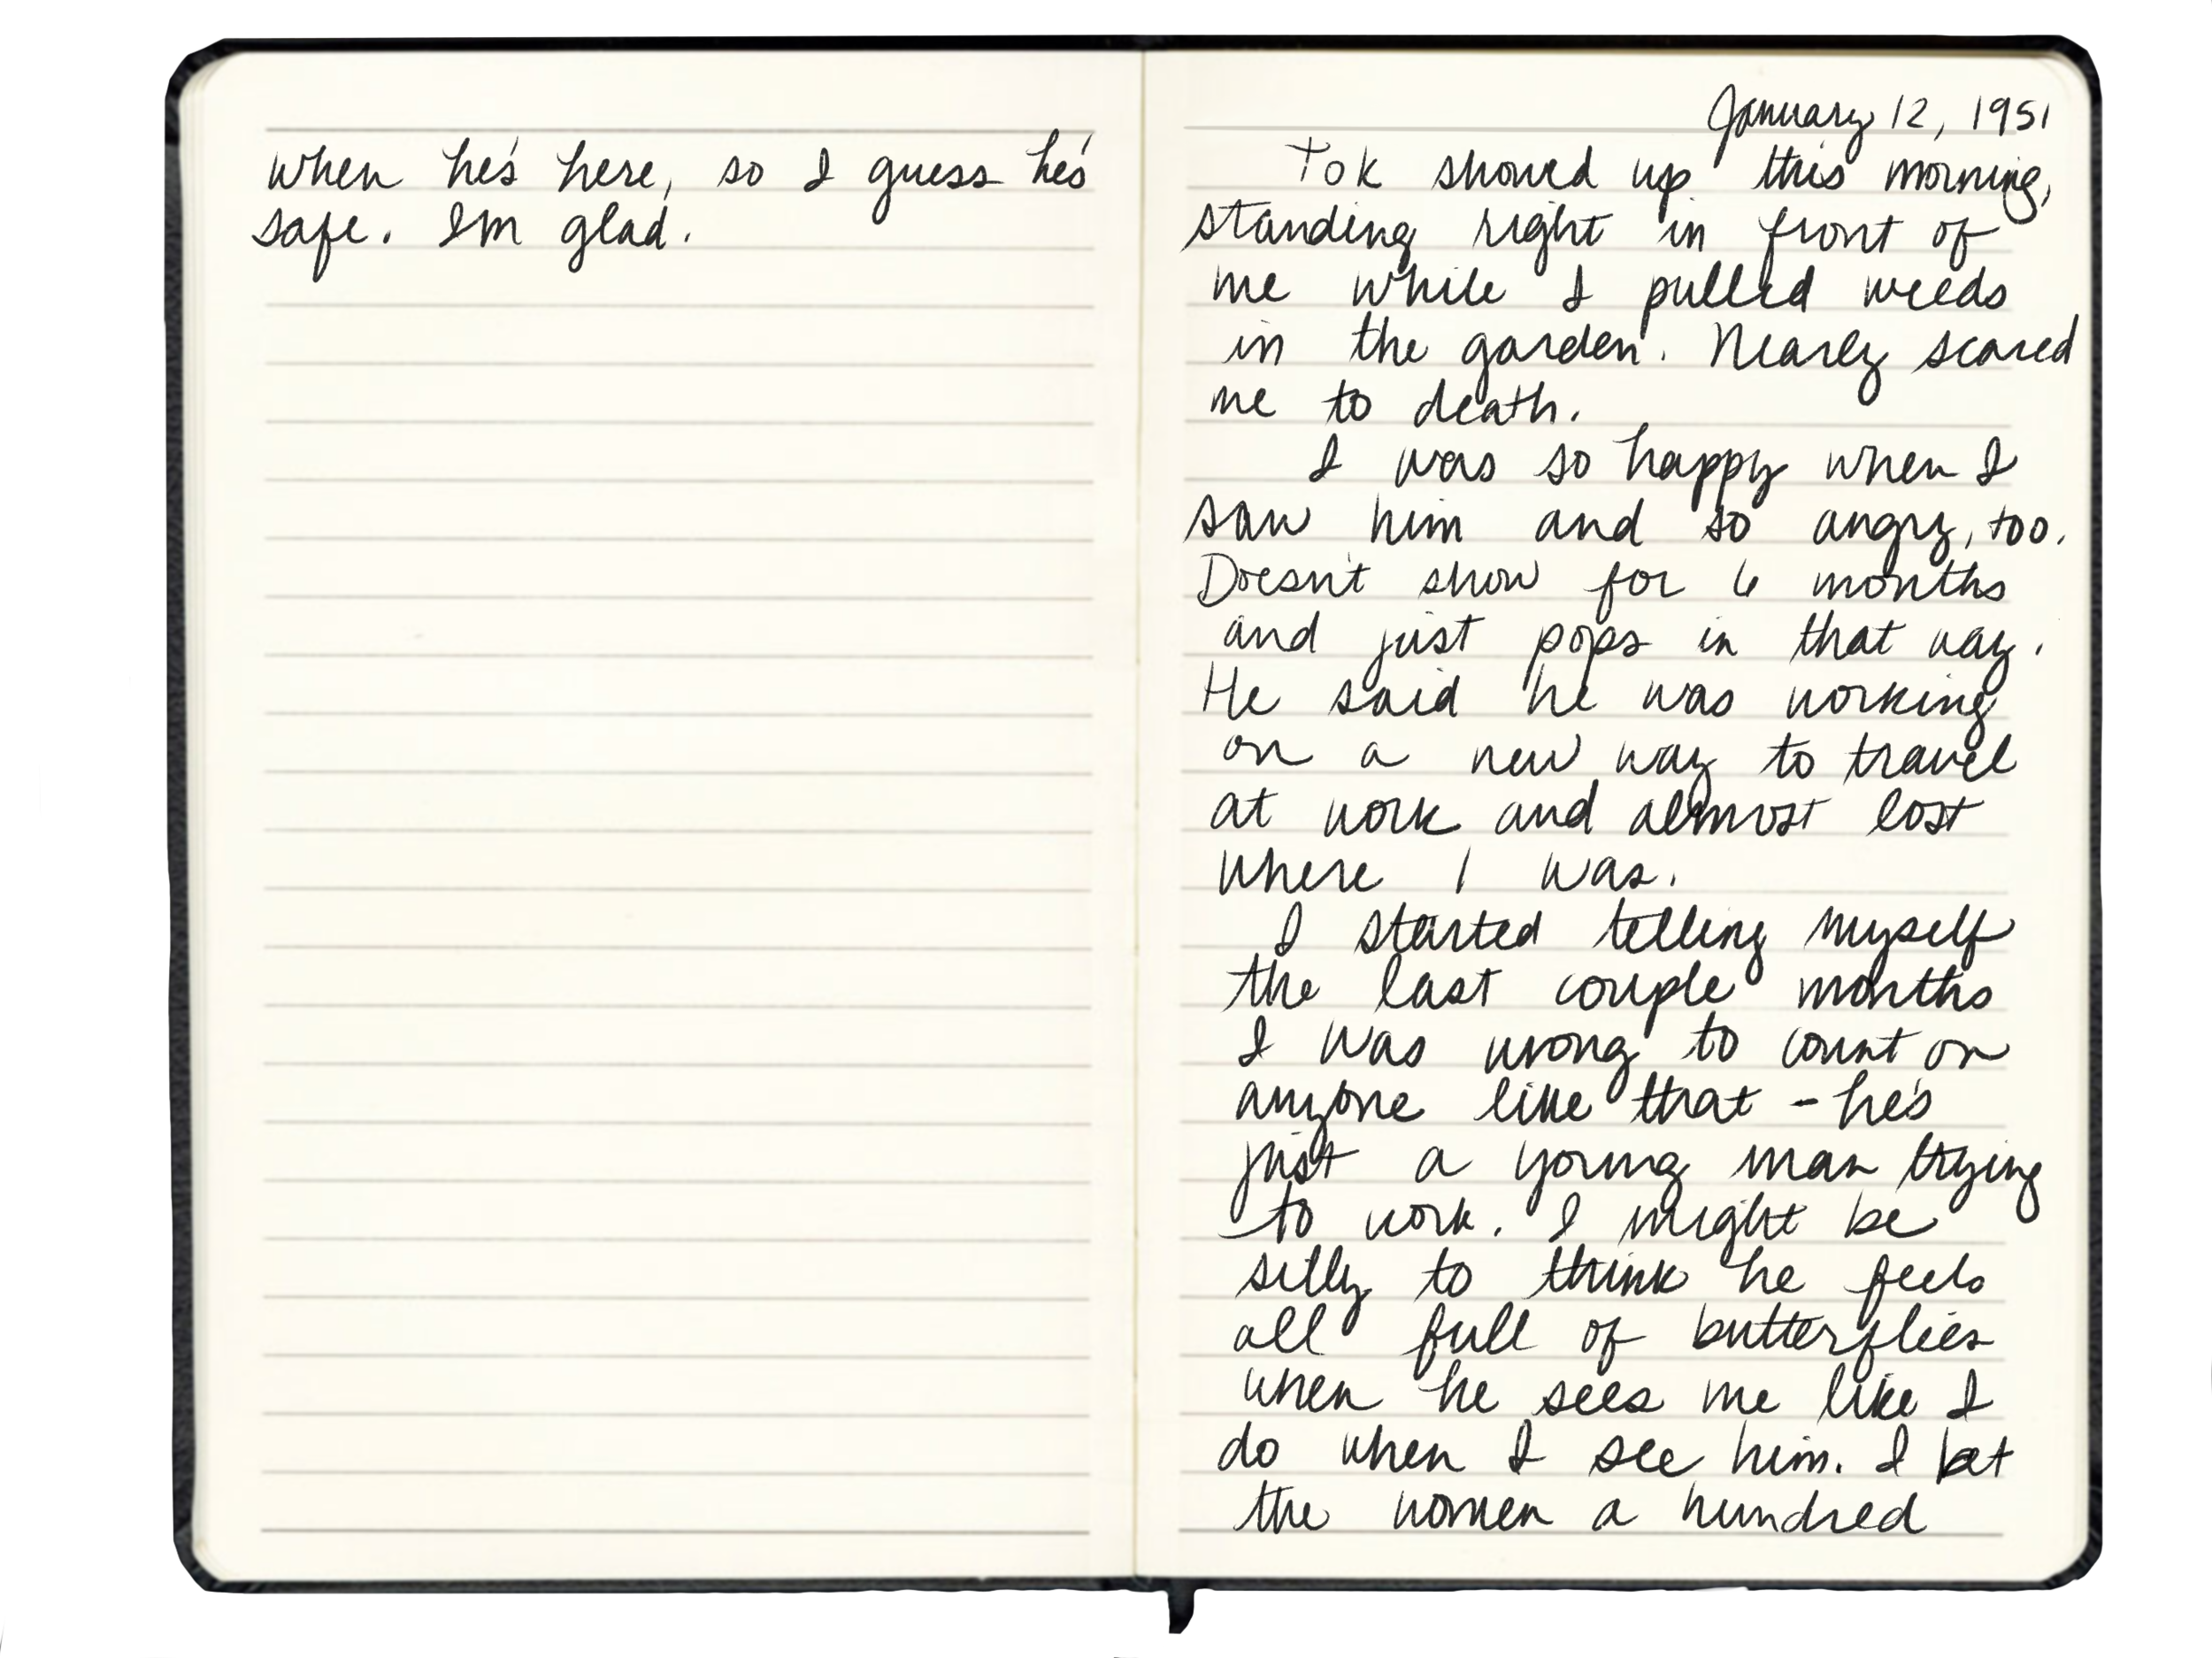 when he's here, so I guess he's
safe. I'm glad.
January 12, 1951
Tok showed up this morning,
standing right in front of
me while I pulled weeds
in the garden. Nearly scared
me to death.
I was so happy when I
saw him and so angry, too.
Doesn't show for 6 months
and just pops in that way.
He said he was working
on a new way to travel
at work and almost lost
where I was.
I started telling myself
the last couple months
I was wrong to count on
anyone like that - he's
just a young man trying
to work. I might be
silly to think he feels
all full of butterflies
when he sees me like I
do when I see him. I bet
the women a hundred